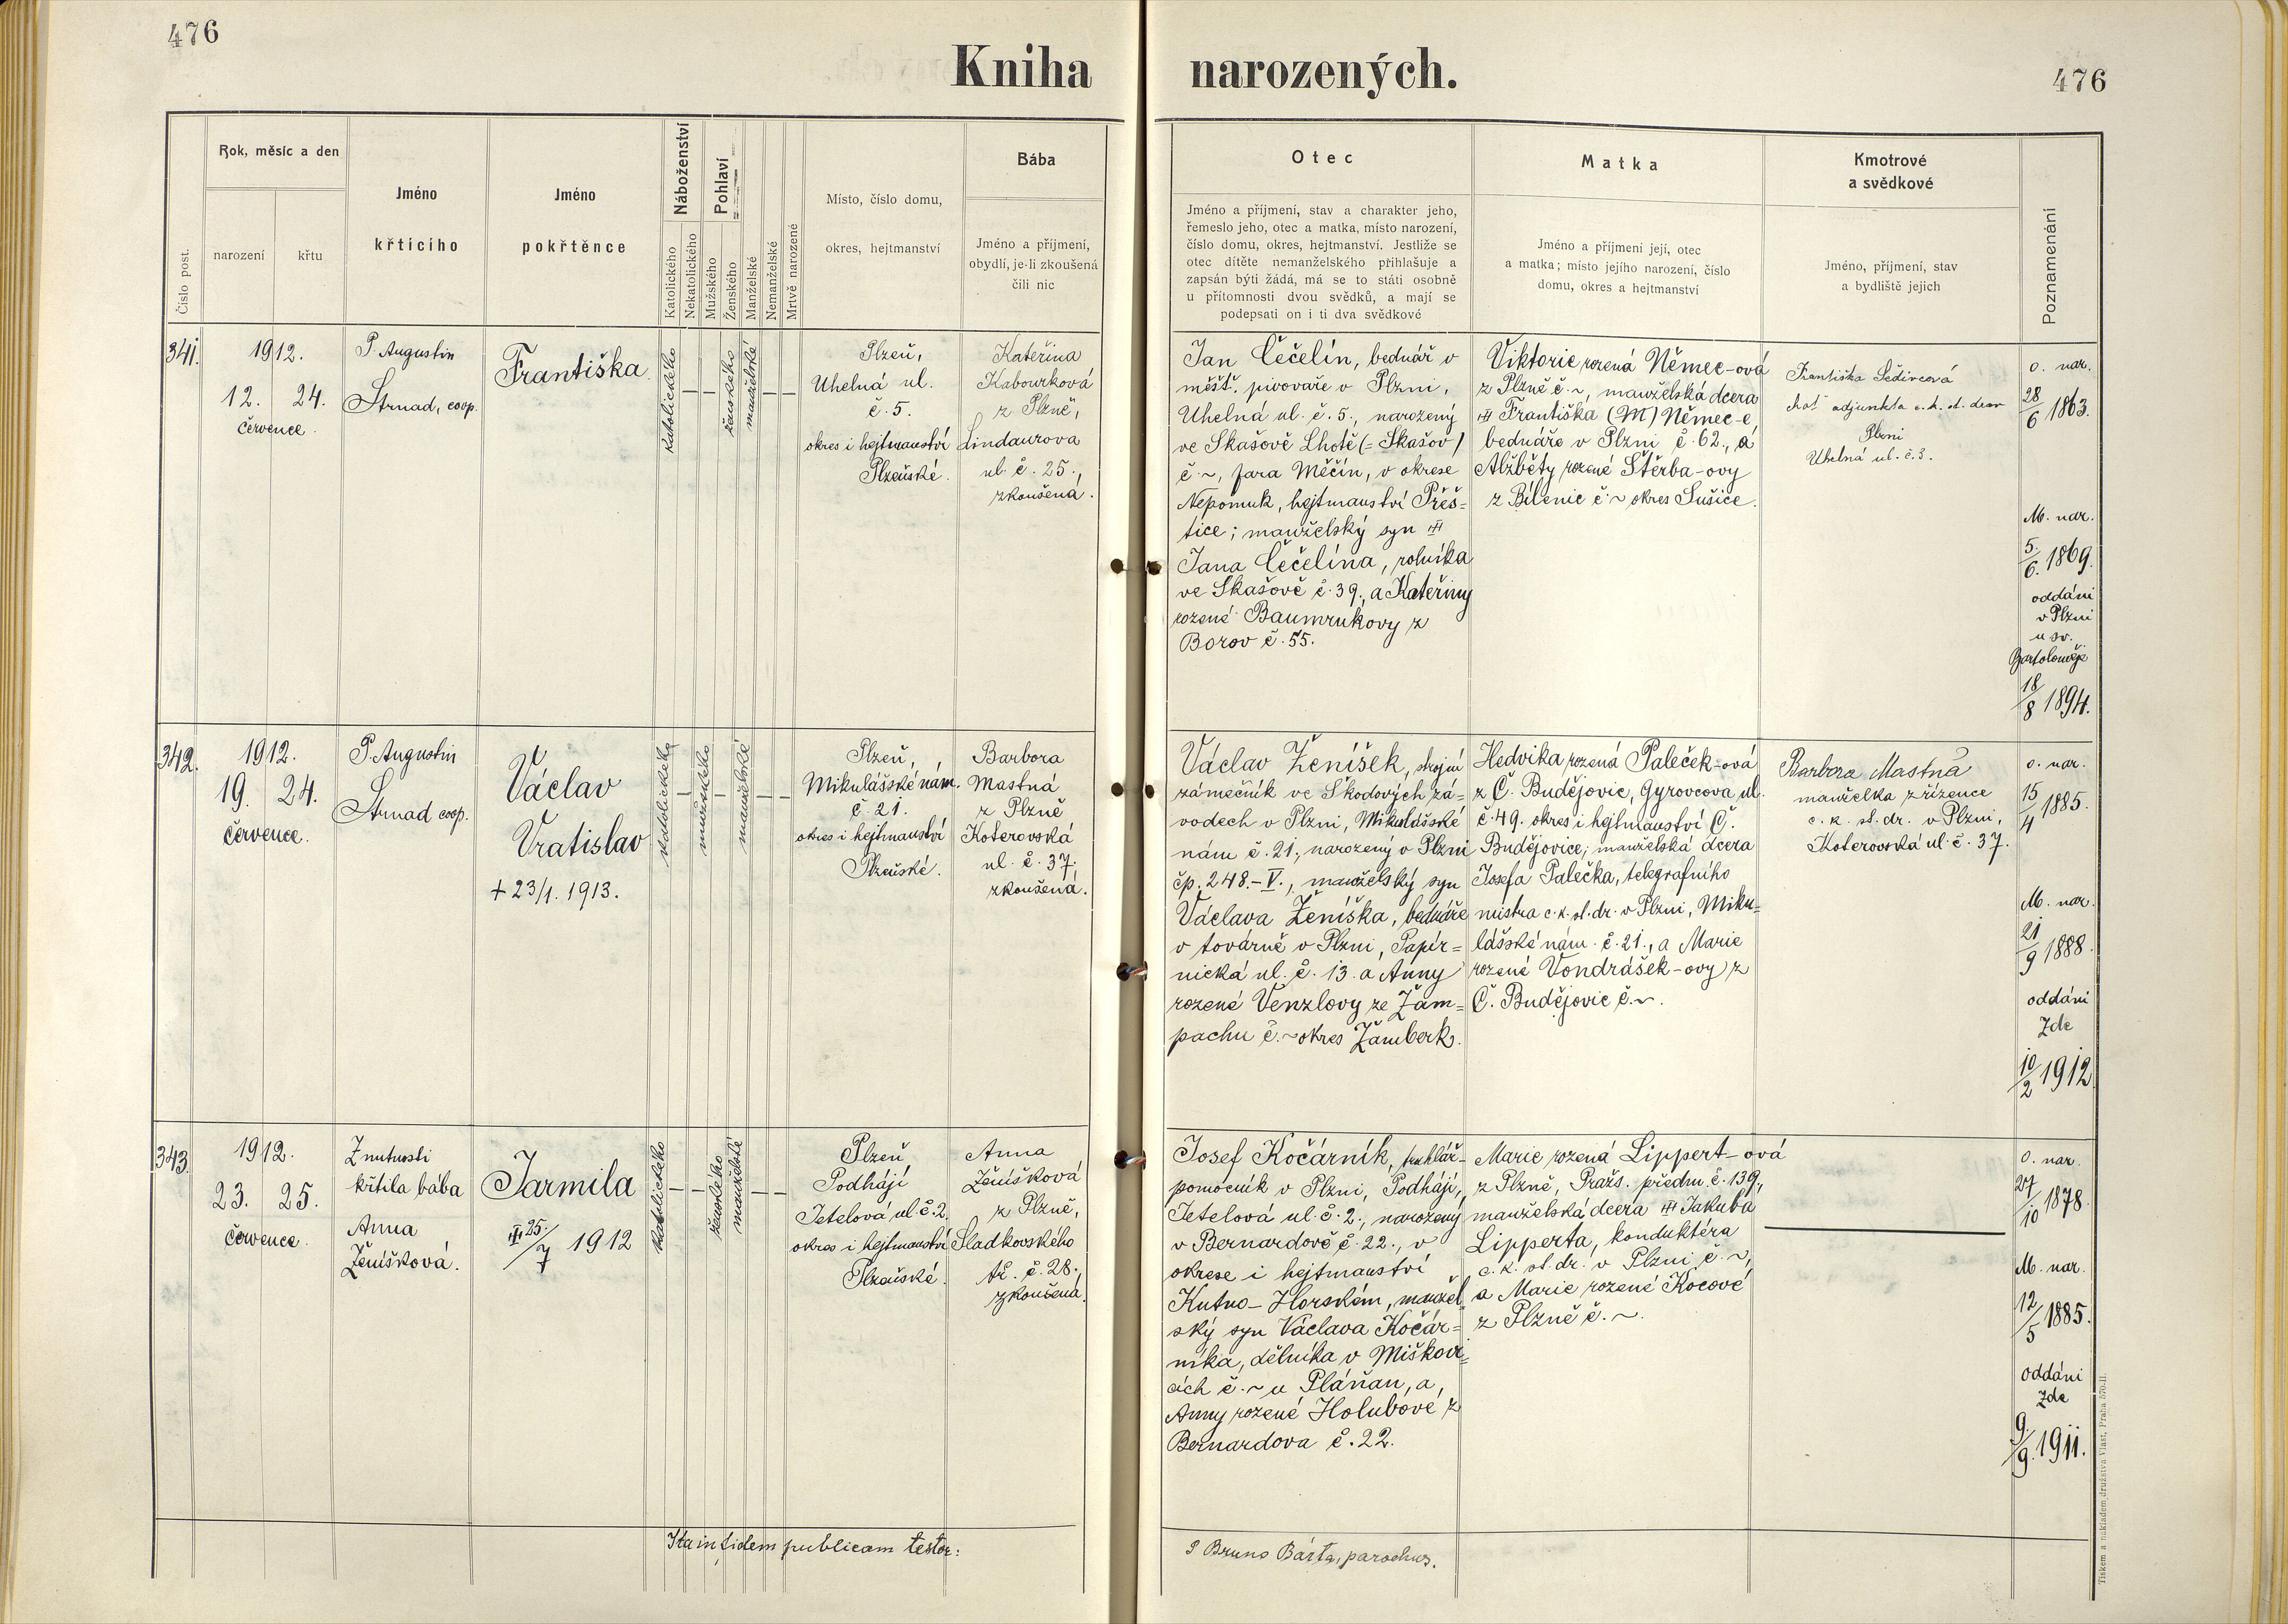 476
Kniha narozených.
476
Číslo post.
Rok, měsíc a den
narození
křtu
Jméno
křticího
Jméno
pokřtěnce
Náboženství
Katolického
Nekatolického
Pohlaví
Mužského
Ženského
Manželské
Nemanželské
Mrtvě narozené
Místo, číslo domu,
okres, hejtmanství
Bába
Jméno a příjmení,
obydlí, je-li zkoušená
čili nic
Otec
Jméno a příjmení, stav a charakter jeho,
řemeslo jeho, otec a matka, místo narození,
číslo domu, okres, hejtmanství. Jestliže se
otec dítěte nemanželského přihlašuje a
zapsán býti žádá, má se to státi osobně
u přítomnosti dvou svědků, a mají se
podepsati on i ti dva svědkové
Matka
Jméno a příjmení její, otec
a matka; místo jejího narození, číslo
domu, okres a hejtmanství
Kmotrové
a svědkové
Jméno, příjmení, stav
a bydliště jejich
Poznamenání
341.
1912.
12. 24.
července.
P. Augustin
Strnad, coop.
Františka
katolického
—
—
ženského
manželské
—
—
Plzeň,
Uhelná ul.
č. 5.
okres i hejtmanství
Plzeňské.
Kateřina
Kabourková
z Plzně,
Lindaurova
ul. č. 25.,
zkoušená.
Jan Čečelín, bednář v
měšť. pivovaře v Plzni,
Uhelná ul. č. 5., narozený
ve Skašově Lhotě (= Skašov)
č ~, fara Měčín, v okrese
Nepomuk, hejtmanství Přeš-
tice; manželský syn
Jana Čečelína, rolníka
ve Skašově č. 39., a Kateřiny
rozené Baumrukovy z
Borov č. 55.
Viktorie rozená Němec-ová
z Plzně č ~, manželská dcera
Františka (M) Němec-e,
bednáře v Plzni č. 62., a
Alžběty rozené Štěrba-ovy
z Bílenic č ~ okres Sušice.
Františka Šedivcová
choť adjunkta c. k. st. drar
Plzni
Uhelná ul. č. 3.
o. nar.
28/6 1863.
M. nar.
5./6. 1869.
oddáni
v Plzni
u sv.
Bartoloměje
18/8 1894.
342.
1912.
19. 24.
července.
P. Augustin
Strnad coop.
Václav
Vratislav
+ 23/1. 1913.
katolického
—
mužského
manželské
—
—
Plzeň,
Mikulášské nám.
č. 21.
okres i hejtmanství
Plzeňské.
Barbora
Mastná
z Plzně
Koterovská
ul. č. 37,
zkoušená.
Václav Ženíšek, strojní
zámečník ve Škodových zá-
vodech v Plzni, Mikulášské
nám č. 21., narozený v Plzni
čp. 248.-V., manželský syn
Václava Ženíška, bednáře
v továrně v Plzni, Papír-
nická ul. č. 13. a Anny
rozené Venzlovy ze Žam-
pachu č. ~ okres Žamberk.
Hedvika rozená Paleček-ová
z Č. Budějovic, Gyrovcova ul.
č. 49. okres i hejtmanství Č.
Budějovice; manželská dcera
Josefa Palečka, telegrafního
mistra c. k. st. dr. v Plzni, Miku-
lášské nám. č. 21., a Marie
rozené Vondrášek-ovy z
Č. Budějovic č. ~.
Barbora Mastná
manželka zřízence
c. k. st. dr. v Plzni,
Koterovská ul. č. 37.
o. nar.
15/4 1885.
M. nar.
21/9 1888.
oddáni
zde
10/2 1912
343.
1912.
23. 25.
července.
Z nutnosti
křtila bába
Anna
Ženíšková.
Jarmila
25./7 1912
katolického
—
—
ženského
manželské
—
—
Plzeň
Podhájí
Jetelová ul. č. 2.
okres i hejtmanství
Plzeňské.
Anna
Ženíšková
z Plzně,
Sladkovského
tř. č. 28.,
zkoušená.
Josef Kočárník, truhlář-
pomocník v Plzni, Podhájí,
Jetelová ul. č. 2., narozený
v Bernardově č. 22., v
okrese i hejtmanství
Kutno-Horském, manžel-
ský syn Václava Kočár-
níka, dělníka v Miškovi-
cích č. ~ u Pláňan, a,
Anny rozené Holubové z
Bernardova č. 22.
Marie rozená Lippert-ová
z Plzně, Pražs. předm. č. 139.,
manželská dcera Jakuba
Lipperta, konduktéra
c. k. st. dr. v Plzni č. ~,
a Marie rozené Kocové
z Plzně č. ~.
o. nar.
27/10 1878.
M. nar.
12/5 1885.
oddáni
zde
9./9. 1911.
Ita in fidem publicam testor:
P Bruno Bárta, parochus.
Tiskem a nákladem družstva Vlast, Praha 570-II.